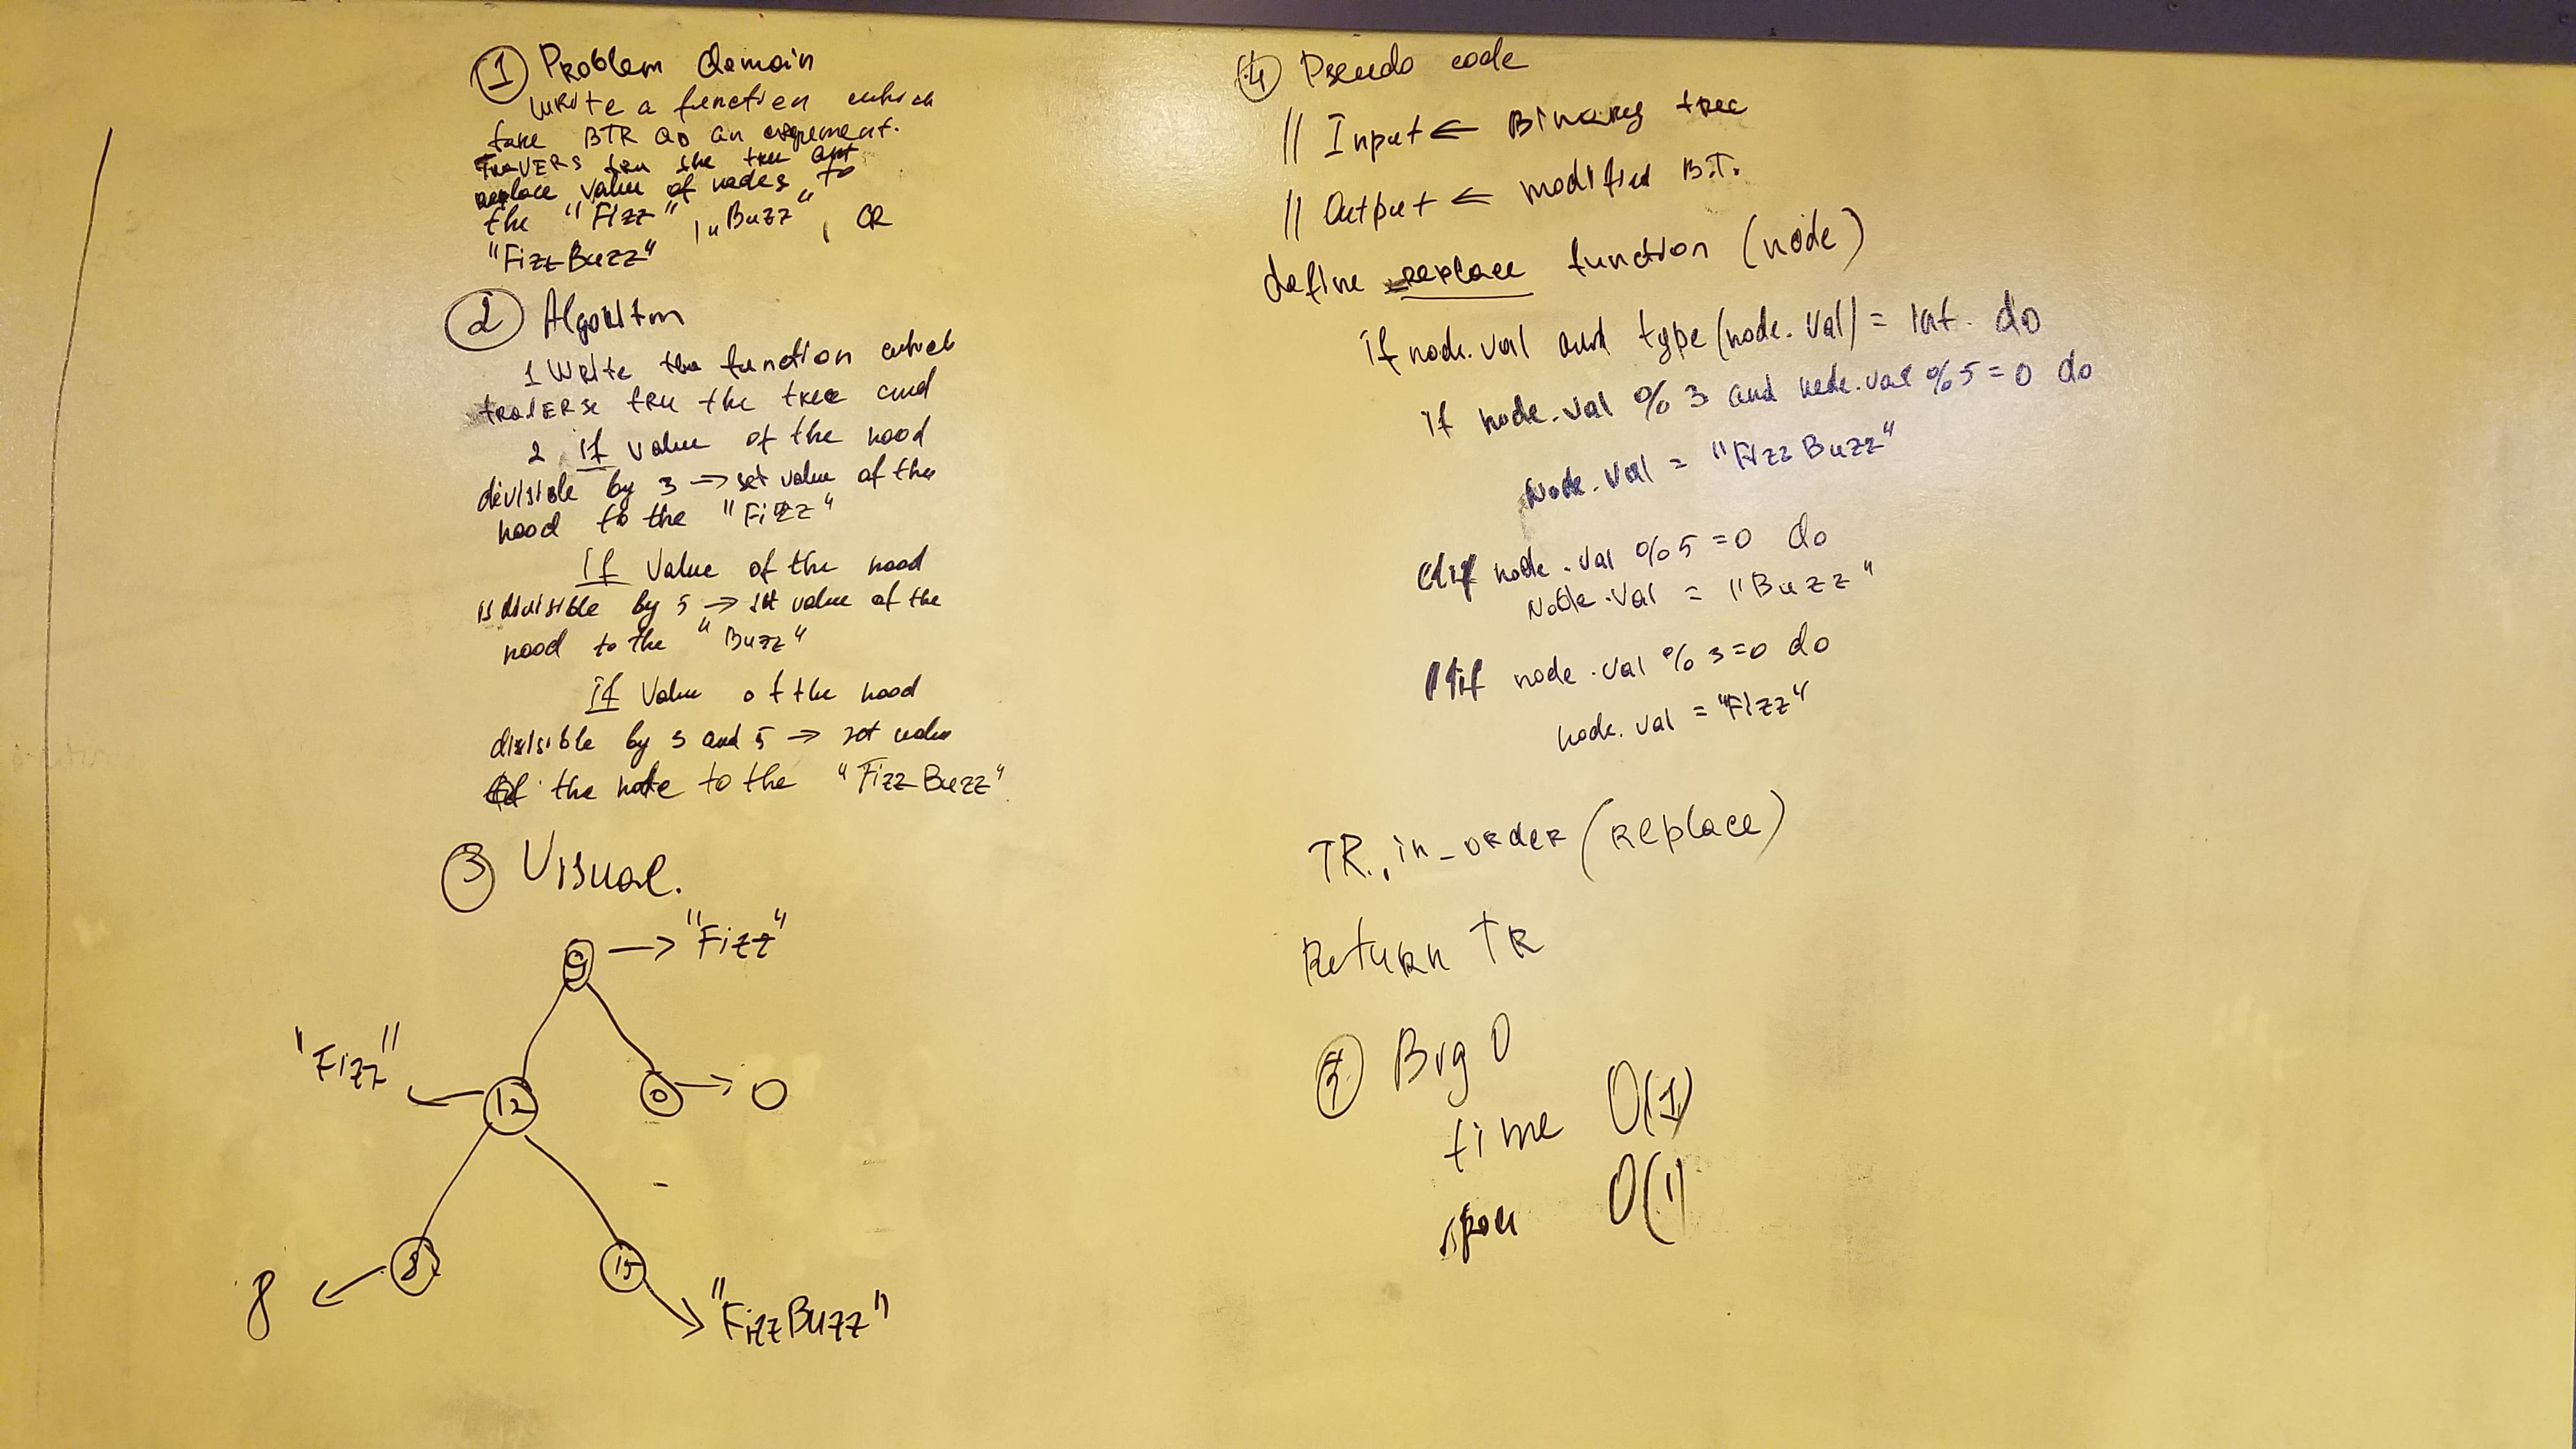 1 Problem domain
Write a function which
take BTR as an argument.
TraVERS tru the tree and
replace value of nodes to
the "Fizz", "Buzz", OR
"FizzBuzz"
2 Algoritm
1 Write the function which
traverse tru the tree and
2 if value of the nood
divisible by 3 → set value of the
nood to the "Fizz"
If Value of the nood
is divisible by 5 → set value of the
nood to the "Buzz"
If Value of the nood
divisible by 3 and 5 → set value
of the note to the "FizzBuzz"
3 Visual.
9 → "Fizz"
"Fizz" ← 12
0 → 0
8 ← 8
15 → "FizzBuzz"
4 Pseudo code
// Input ← Binary tree
// Output ← modified B.T.
define replace function (node)
if node.val and type(node.val) = int. do
if node.val % 3 and node.val % 5 = 0 do
Node.val = "FizzBuzz"
elif node.val % 5 = 0 do
Node.val = "Buzz"
elif node.val % 3 = 0 do
node.val = "Fizz"
TR.in_order(replace)
Return TR
5 Big O
time O(1)
O(1)